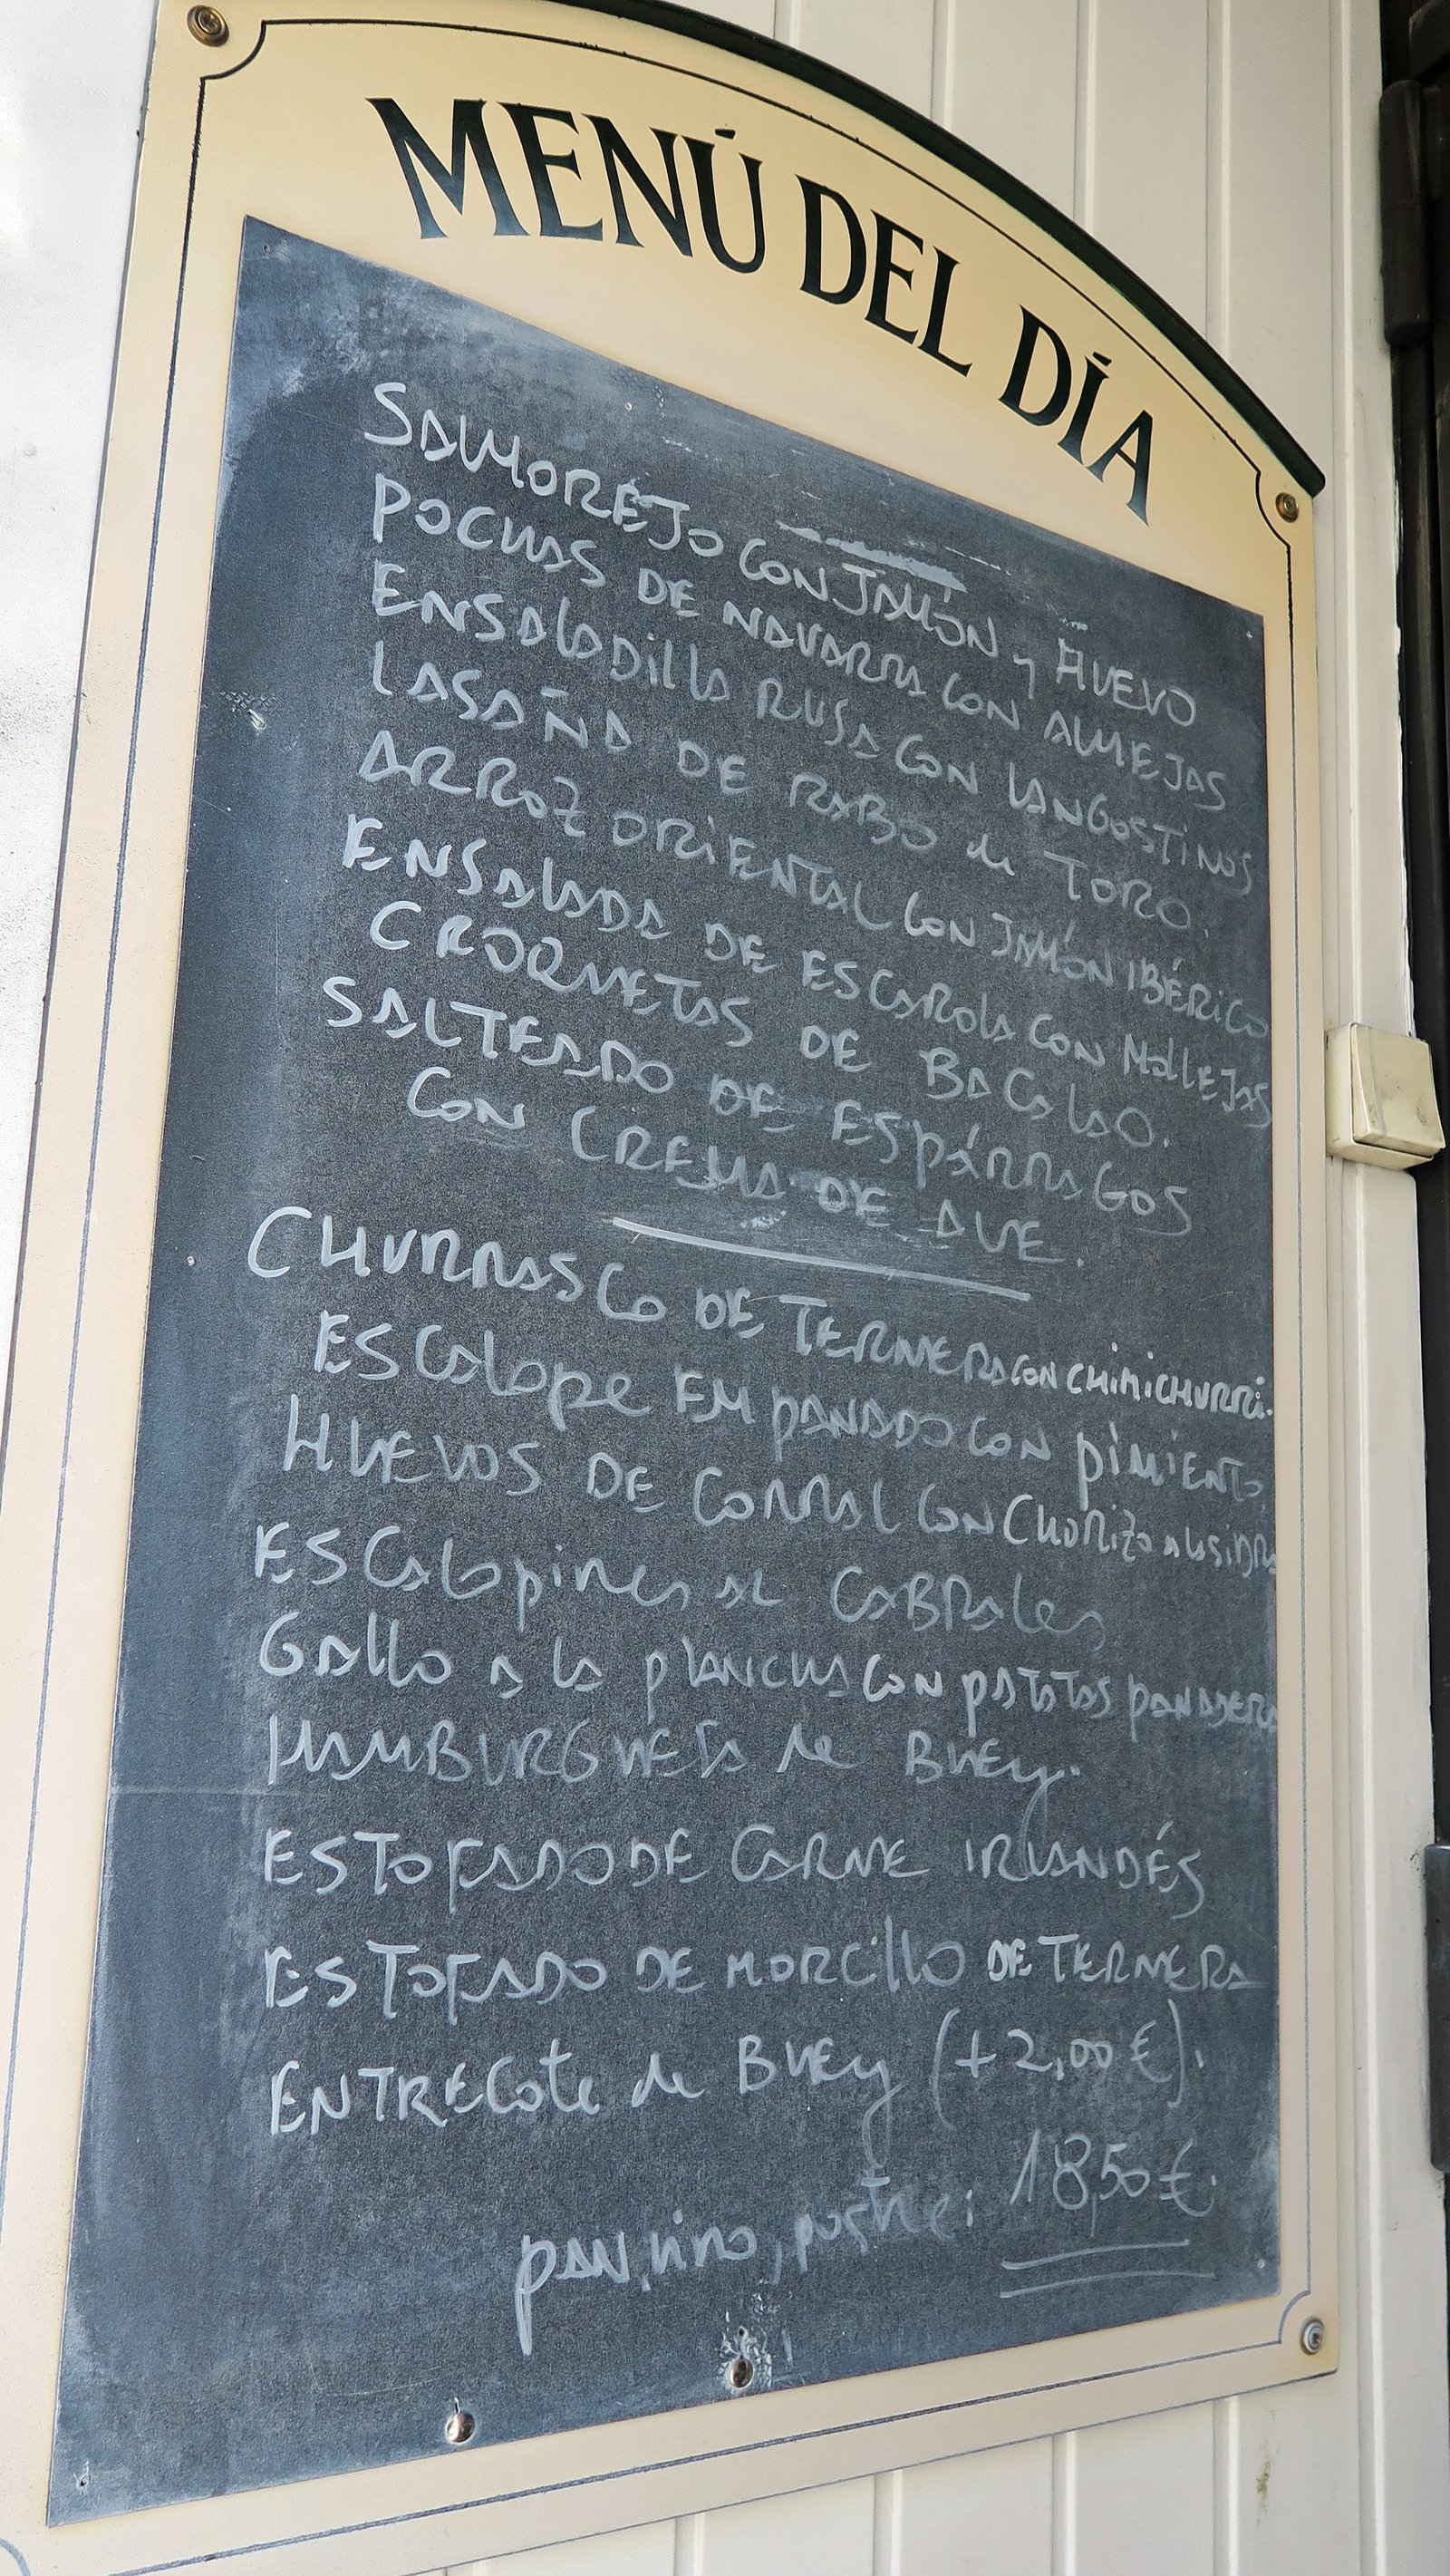 MENÚ DEL DÍA
SALMOREJO CON JAMÓN y HUEVO
POCHAS DE NAVARRA CON ALMEJAS
ENSALADILLA RUSA CON LANGOSTINOS
LASAÑA DE RABO de TORO.
ARROZ ORIENTAL CON JAMÓN IBÉRICO
ENSALADA DE ESCAROLA CON MOLLEJAS
CROQUETAS DE BACALAO.
SALTEADO DE ESPÁRRAGOS
CON CREMA DE AVE.
CHURRASCO DE TERNERA CON CHIMICHURRI.
ESCALOPE EMPANADO CON PIMIENTO,
HUEVOS DE CORRAL CON CHORIZO A LA SIDRA
ESCALOPINES AL CABRALES
GALLO A la PLANCHA CON PATATAS PANADERA
HAMBURGUESA de BUEY.
ESTOFADO DE CARNE IRLANDÉS
ESTOFADO DE MORCILLO DE TERNERA
ENTRECOTE de BUEY (+2,00 €).
PAN, vino, postre: 18,50 €.